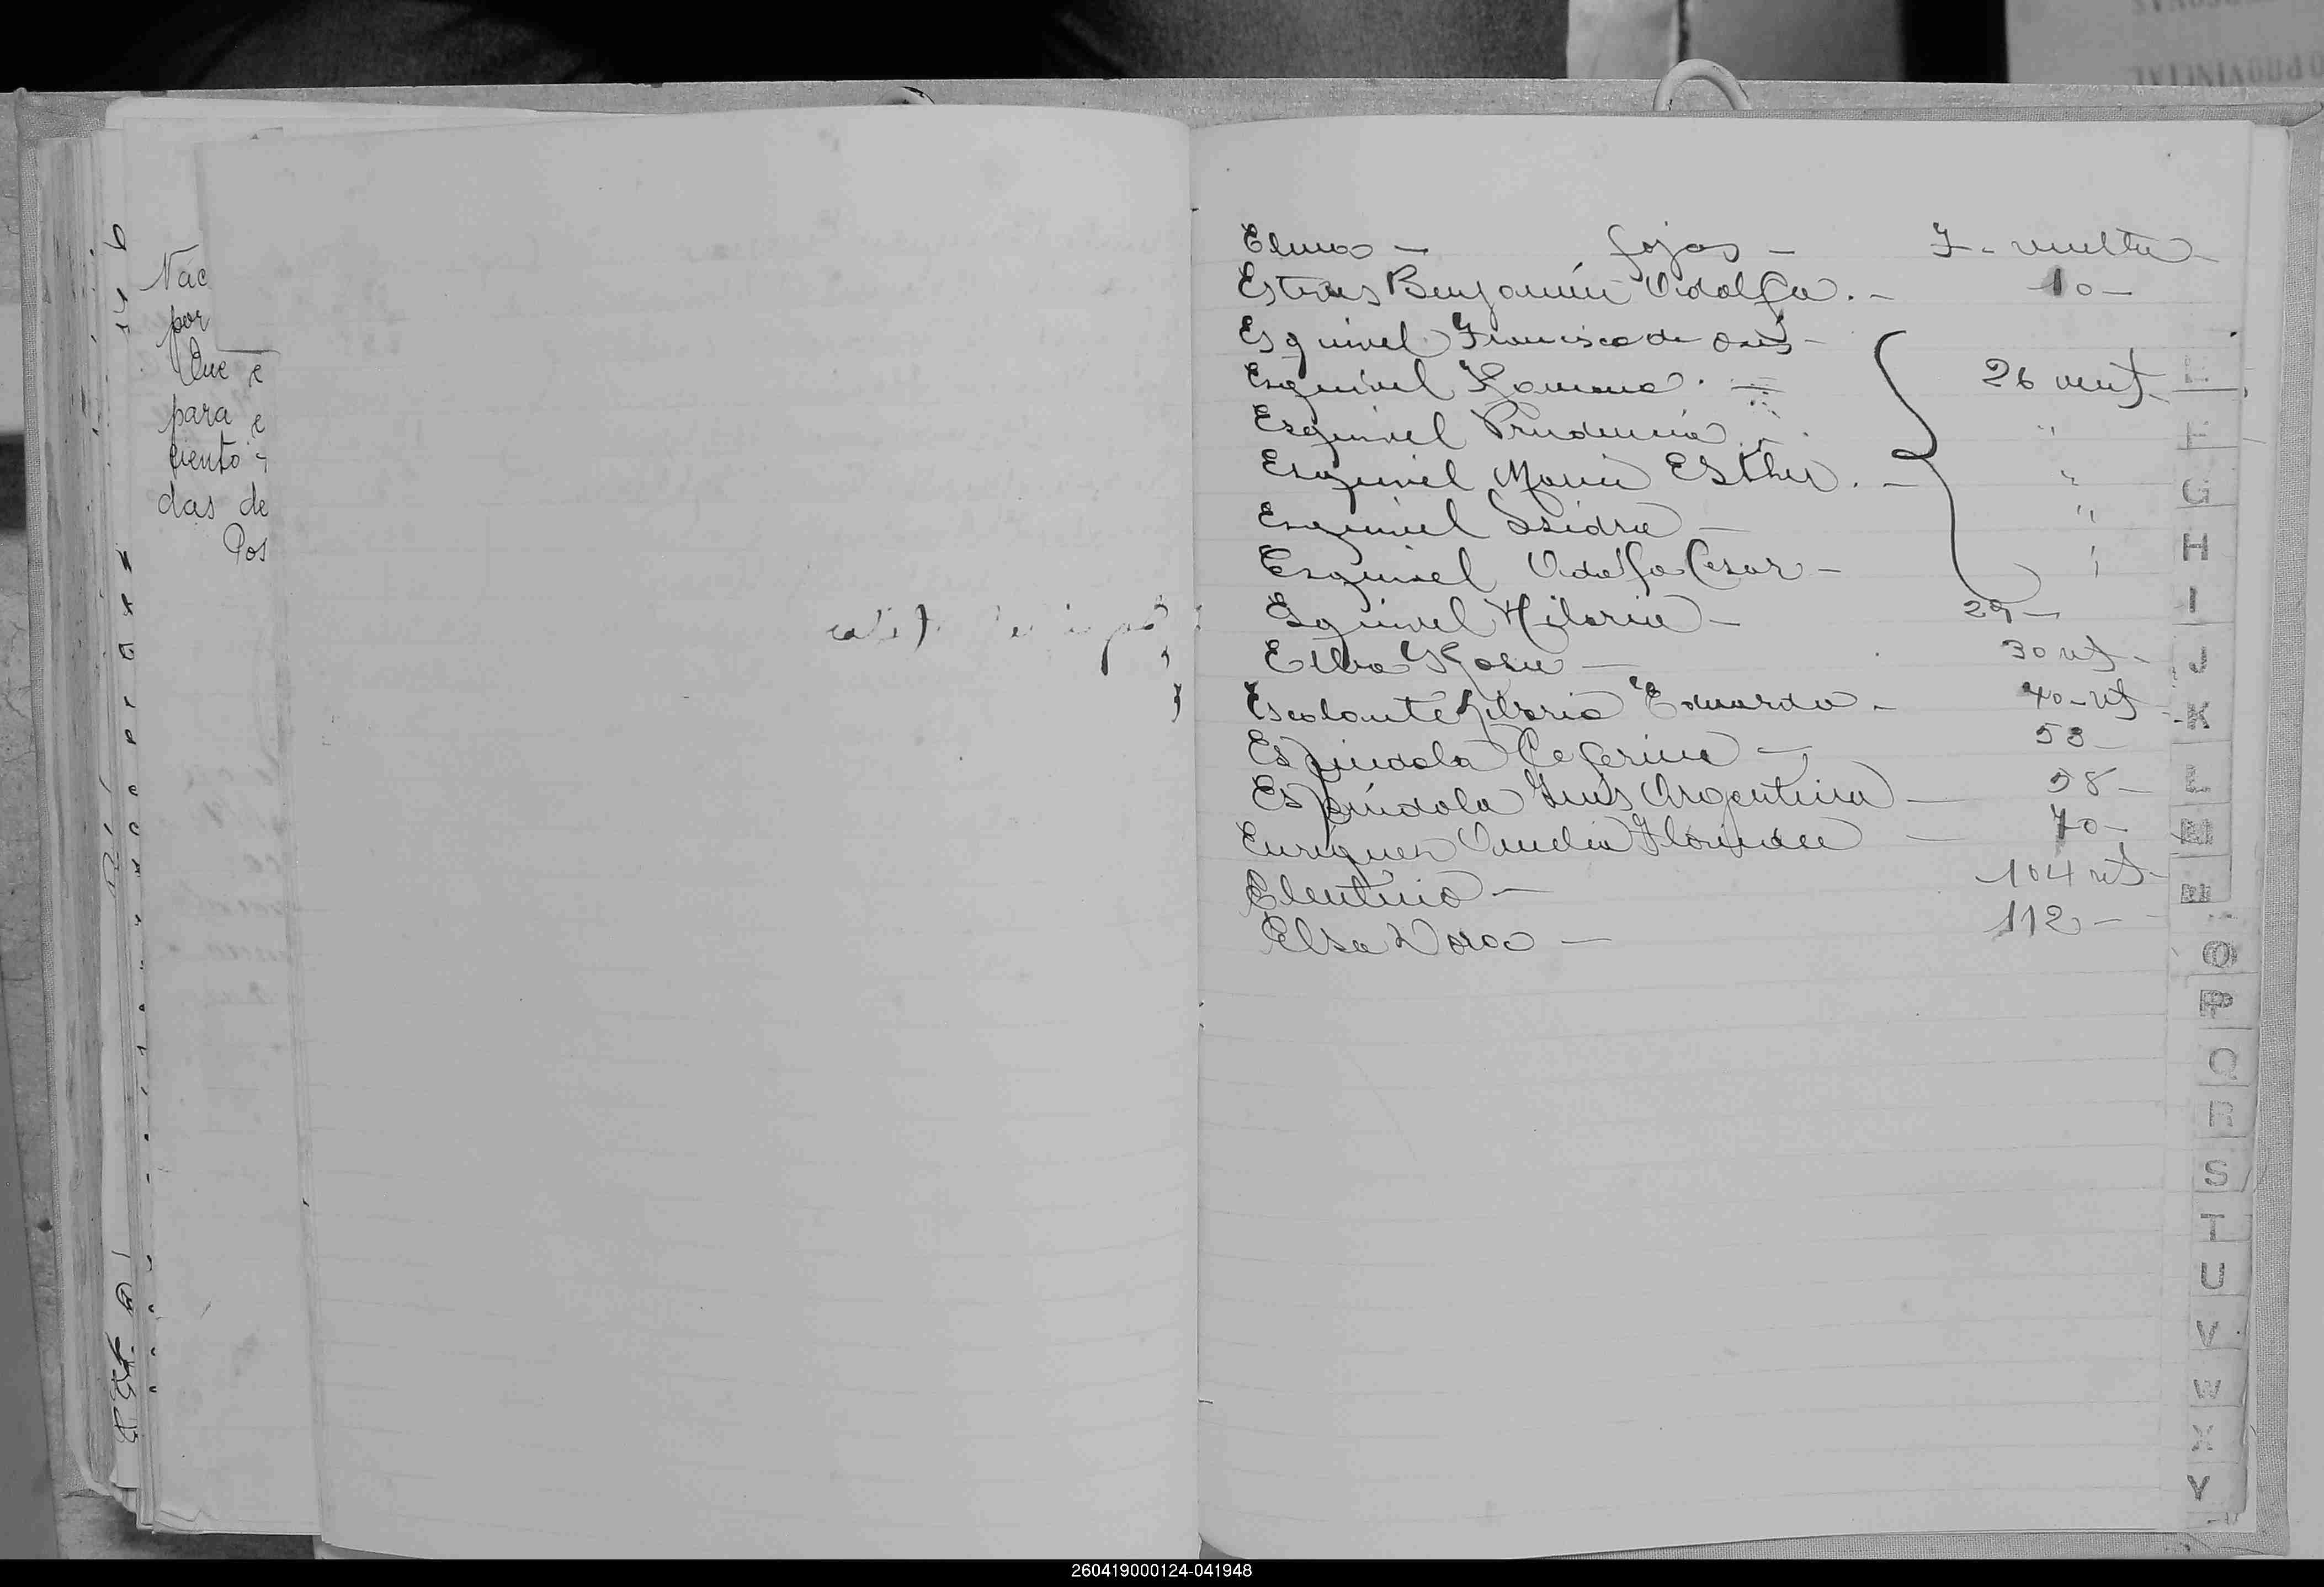 Nac
por
Que e
para e
ciento
das de
Pos
Elma — fojas — 7 - vuelta —
Esteves Benjamín Adolfo. — 10 —
Esquivel Francisco de Asis —
Esquivel Ramona. — 26 vuelt.
Esquivel Prudencia. — "
Esquivel María Esther. — "
Esquivel Isidra — "
Esquivel Adolfo Cesar — "
Esquivel Hilaria — 29 —
Elba Rosa — 30 vt —
Escalante Hilario Eduardo — 40 - vt
Espindola Ceferina — 53 —
Espíndola Inés Argentina — 58 —
Enriquez Amelia — 70 —
Eleuterio — 104 vt —
Elsa Dora — 112 —
E
F
G
H
I
J
K
L
M
N
O
P
Q
R
S
T
U
V
W
X
Y
260419000124-041948